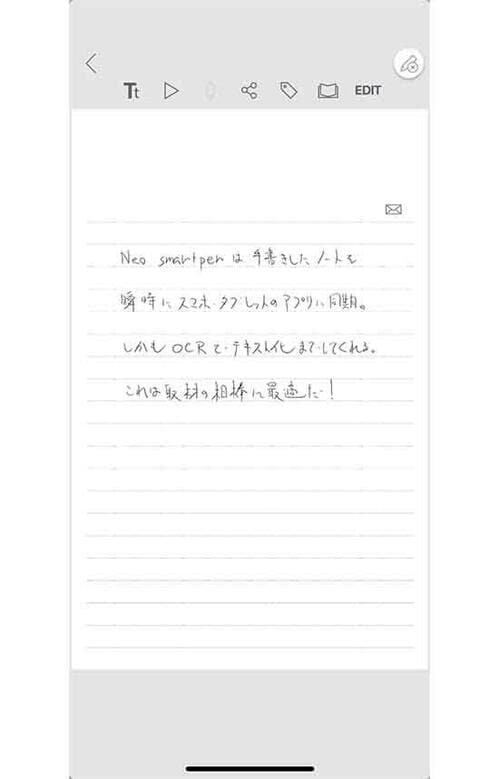 Tt
EDIT
Neo smartpen は 手書きした ノートを
瞬時に スマホ・タブレットの アプリに 同期。
しかも OCR で テキスト化まで してくれる。
これは 取材の 相棒に 最適だ!